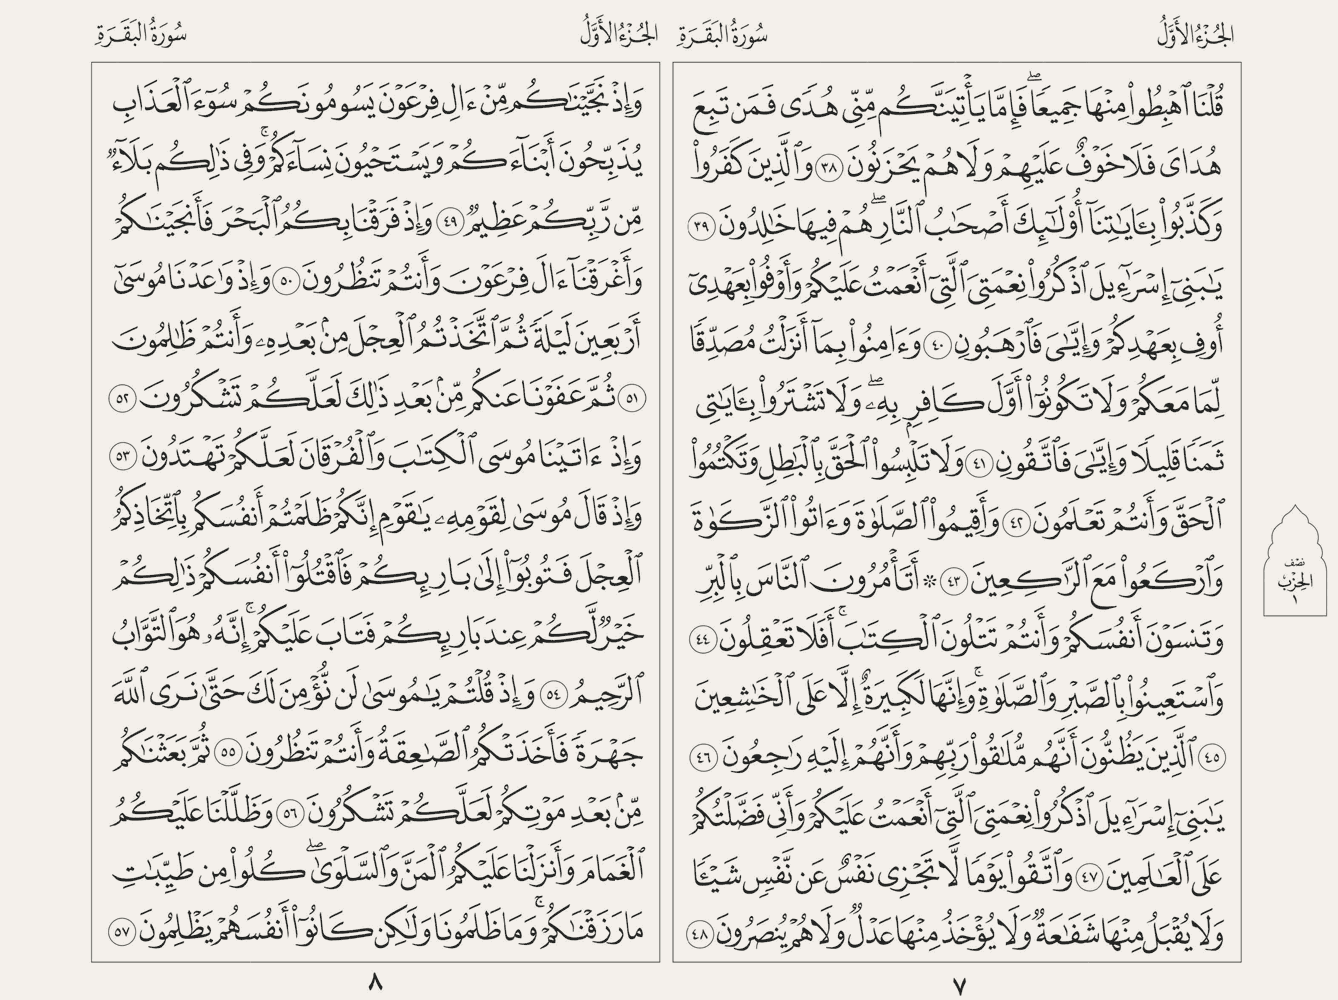 الجُزْءُ الأَوَّلُ
سُورَةُ البَقَرَةِ
قُلْنَا ٱهْبِطُوا۟ مِنْهَا جَمِيعًا ۖ فَإِمَّا يَأْتِيَنَّكُم مِّنِّى هُدًى فَمَن تَبِعَ
هُدَاىَ فَلَا خَوْفٌ عَلَيْهِمْ وَلَا هُمْ يَحْزَنُونَ ٣٨ وَٱلَّذِينَ كَفَرُوا۟
وَكَذَّبُوا۟ بِـَٔايَـٰتِنَآ أُو۟لَـٰٓئِكَ أَصْحَـٰبُ ٱلنَّارِ ۖ هُمْ فِيهَا خَـٰلِدُونَ ٣٩
يَـٰبَنِىٓ إِسْرَٰٓءِيلَ ٱذْكُرُوا۟ نِعْمَتِىَ ٱلَّتِىٓ أَنْعَمْتُ عَلَيْكُمْ وَأَوْفُوا۟ بِعَهْدِىٓ
أُوفِ بِعَهْدِكُمْ وَإِيَّـٰىَ فَٱرْهَبُونِ ٤٠ وَءَامِنُوا۟ بِمَآ أَنزَلْتُ مُصَدِّقًا
لِّمَا مَعَكُمْ وَلَا تَكُونُوٓا۟ أَوَّلَ كَافِرٍۭ بِهِۦ ۖ وَلَا تَشْتَرُوا۟ بِـَٔايَـٰتِى
ثَمَنًا قَلِيلًا وَإِيَّـٰىَ فَٱتَّقُونِ ٤١ وَلَا تَلْبِسُوا۟ ٱلْحَقَّ بِٱلْبَـٰطِلِ وَتَكْتُمُوا۟
ٱلْحَقَّ وَأَنتُمْ تَعْلَمُونَ ٤٢ وَأَقِيمُوا۟ ٱلصَّلَوٰةَ وَءَاتُوا۟ ٱلزَّكَوٰةَ
وَٱرْكَعُوا۟ مَعَ ٱلرَّٰكِعِينَ ٤٣ ۞ أَتَأْمُرُونَ ٱلنَّاسَ بِٱلْبِرِّ
وَتَنسَوْنَ أَنفُسَكُمْ وَأَنتُمْ تَتْلُونَ ٱلْكِتَـٰبَ ۚ أَفَلَا تَعْقِلُونَ ٤٤
وَٱسْتَعِينُوا۟ بِٱلصَّبْرِ وَٱلصَّلَوٰةِ ۚ وَإِنَّهَا لَكَبِيرَةٌ إِلَّا عَلَى ٱلْخَـٰشِعِينَ
٤٥ ٱلَّذِينَ يَظُنُّونَ أَنَّهُم مُّلَـٰقُوا۟ رَبِّهِمْ وَأَنَّهُمْ إِلَيْهِ رَٰجِعُونَ ٤٦
يَـٰبَنِىٓ إِسْرَٰٓءِيلَ ٱذْكُرُوا۟ نِعْمَتِىَ ٱلَّتِىٓ أَنْعَمْتُ عَلَيْكُمْ وَأَنِّى فَضَّلْتُكُمْ
عَلَى ٱلْعَـٰلَمِينَ ٤٧ وَٱتَّقُوا۟ يَوْمًا لَّا تَجْزِى نَفْسٌ عَن نَّفْسٍ شَيْـًٔا
وَلَا يُقْبَلُ مِنْهَا شَفَـٰعَةٌ وَلَا يُؤْخَذُ مِنْهَا عَدْلٌ وَلَا هُمْ يُنصَرُونَ ٤٨
٧
نصْف
الحِزْب
١
الجُزْءُ الأَوَّلُ
سُورَةُ البَقَرَةِ
وَإِذْ نَجَّيْنَـٰكُم مِّنْ ءَالِ فِرْعَوْنَ يَسُومُونَكُمْ سُوٓءَ ٱلْعَذَابِ
يُذَبِّحُونَ أَبْنَآءَكُمْ وَيَسْتَحْيُونَ نِسَآءَكُمْ ۚ وَفِى ذَٰلِكُم بَلَآءٌ
مِّن رَّبِّكُمْ عَظِيمٌ ٤٩ وَإِذْ فَرَقْنَا بِكُمُ ٱلْبَحْرَ فَأَنجَيْنَـٰكُمْ
وَأَغْرَقْنَآ ءَالَ فِرْعَوْنَ وَأَنتُمْ تَنظُرُونَ ٥٠ وَإِذْ وَٰعَدْنَا مُوسَىٰٓ
أَرْبَعِينَ لَيْلَةً ثُمَّ ٱتَّخَذْتُمُ ٱلْعِجْلَ مِنۢ بَعْدِهِۦ وَأَنتُمْ ظَـٰلِمُونَ
٥١ ثُمَّ عَفَوْنَا عَنكُم مِّنۢ بَعْدِ ذَٰلِكَ لَعَلَّكُمْ تَشْكُرُونَ ٥٢
وَإِذْ ءَاتَيْنَا مُوسَى ٱلْكِتَـٰبَ وَٱلْفُرْقَانَ لَعَلَّكُمْ تَهْتَدُونَ ٥٣
وَإِذْ قَالَ مُوسَىٰ لِقَوْمِهِۦ يَـٰقَوْمِ إِنَّكُمْ ظَلَمْتُمْ أَنفُسَكُم بِٱتِّخَاذِكُمُ
ٱلْعِجْلَ فَتُوبُوٓا۟ إِلَىٰ بَارِئِكُمْ فَٱقْتُلُوٓا۟ أَنفُسَكُمْ ذَٰلِكُمْ
خَيْرٌ لَّكُمْ عِندَ بَارِئِكُمْ فَتَابَ عَلَيْكُمْ ۚ إِنَّهُۥ هُوَ ٱلتَّوَّابُ
ٱلرَّحِيمُ ٥٤ وَإِذْ قُلْتُمْ يَـٰمُوسَىٰ لَن نُّؤْمِنَ لَكَ حَتَّىٰ نَرَى ٱللَّهَ
جَهْرَةً فَأَخَذَتْكُمُ ٱلصَّـٰعِقَةُ وَأَنتُمْ تَنظُرُونَ ٥٥ ثُمَّ بَعَثْنَـٰكُم
مِّنۢ بَعْدِ مَوْتِكُمْ لَعَلَّكُمْ تَشْكُرُونَ ٥٦ وَظَلَّلْنَا عَلَيْكُمُ
ٱلْغَمَامَ وَأَنزَلْنَا عَلَيْكُمُ ٱلْمَنَّ وَٱلسَّلْوَىٰ ۖ كُلُوا۟ مِن طَيِّبَـٰتِ
مَا رَزَقْنَـٰكُمْ ۚ وَمَا ظَلَمُونَا وَلَـٰكِن كَانُوٓا۟ أَنفُسَهُمْ يَظْلِمُونَ ٥٧
٨